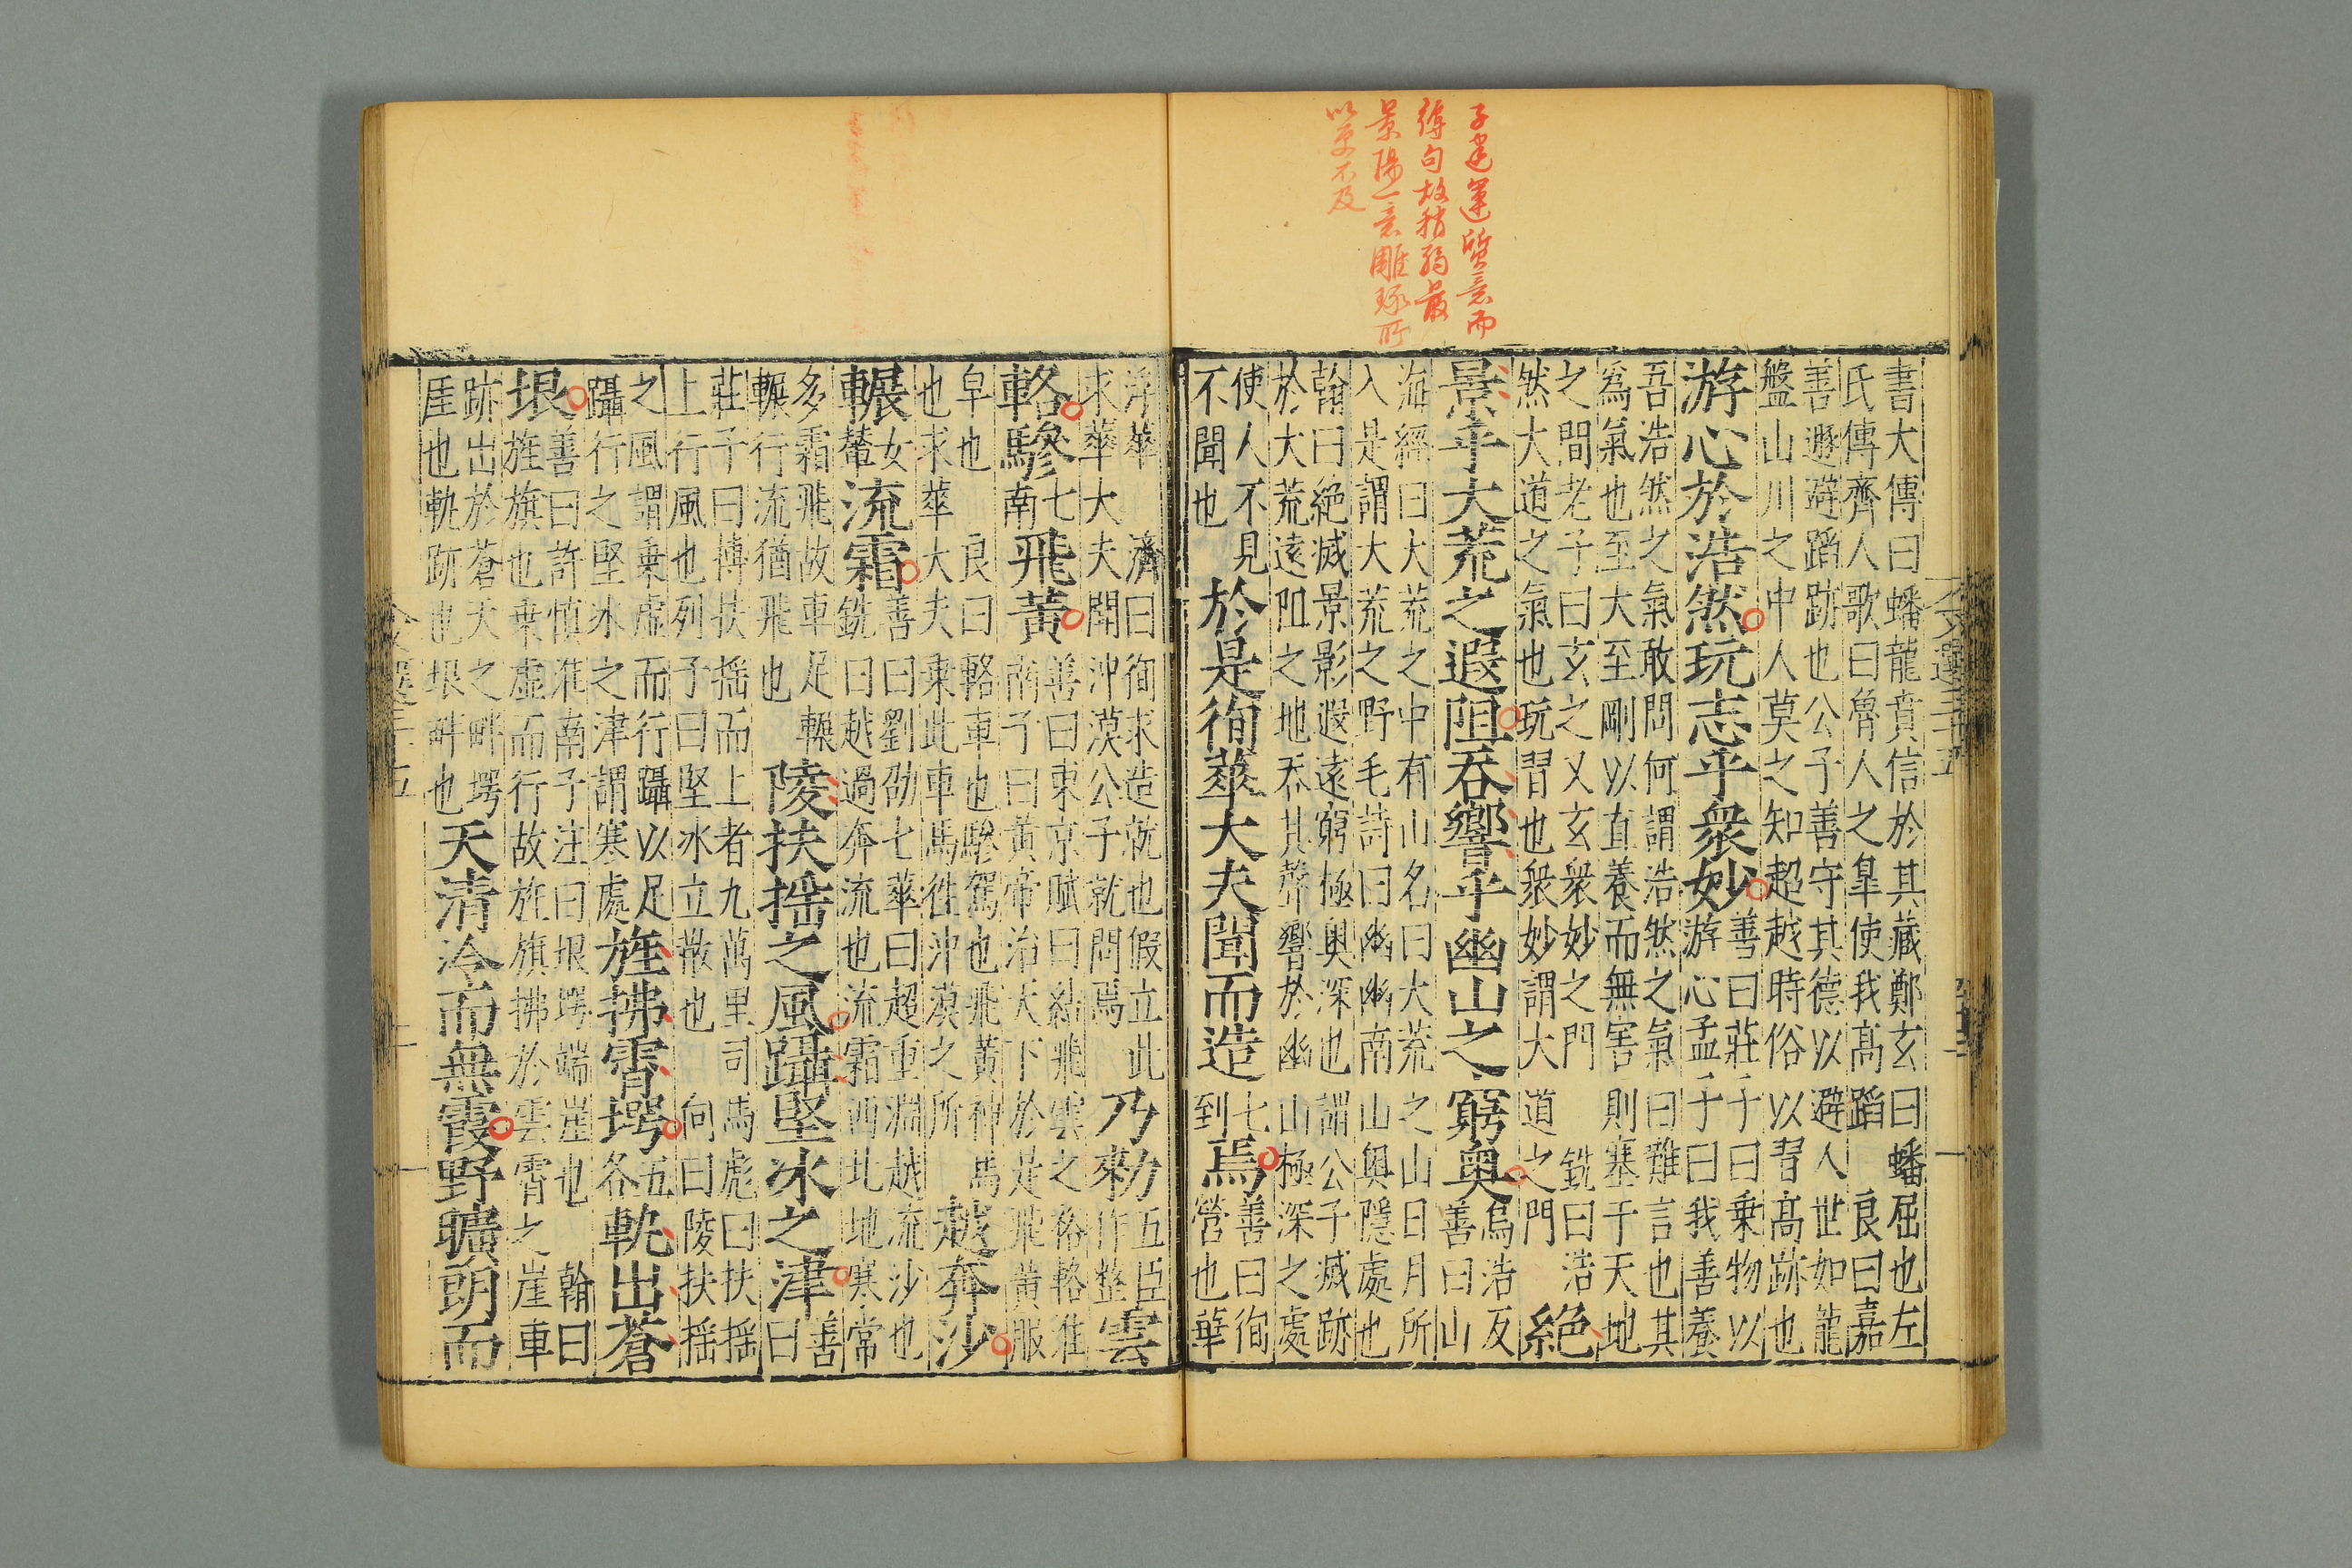 子建運質意而
得句故稍弱最
景陽一意雕琢所
以更不及
書大傳曰蟠龍賁信於其藏鄭玄曰蟠屈也左
氏傳齊人歌曰魯人之臯使我高蹈 良曰嘉
善遯避蹈跡也公子善守其德以避人世如龍
盤山川之中人莫之知超越時俗以習高跡也
游心於浩然玩志乎衆妙
善曰莊子曰乗物以
游心孟子曰我善養
吾浩然之氣敢問何謂浩然之氣曰難言也其
爲氣也至大至剛以直養而無害則塞于天地
之間老子曰玄之又玄衆妙之門 銑曰浩
然大道之氣也玩習也衆妙謂大道之門
絶
景乎大荒之遐阻吞響乎幽山之窮奧
烏浩反
善曰山
海經曰大荒之中有山名曰大荒之山日月所
入是謂大荒之野毛詩曰幽幽南山奧隱處也
翰曰絶滅景影遐遠窮極奧深也謂公子滅跡
於大荒遠阻之地吞其聲響於幽山極深之處
使人不見
不聞也
於是徇華大夫聞而造
七
到
焉
善曰徇
營也華
浮華 濟曰徇求造就也假立此
求華大夫聞沖漠公子就問焉
乃勑
五臣
作整
雲
輅驂
七
南
飛黃
善曰東京賦曰結飛雲之袷輅淮
南子曰黃帝治天下於是飛黃服
皁也 良曰輅車也驂駕也飛黃神馬
也求華大夫乗此車馬徃沖漠之所
越奔沙
輾
女
輦
流霜
善曰劉劭七華曰超重淵越流沙也
銑曰越過奔流也流霜西北地寒常
多霜飛故車足轢
輾行流猶飛也
陵扶揺之風躡堅冰之津
善
曰
莊子曰摶扶揺而上者九萬里司馬彪曰扶揺
上行風也列子曰堅冰立散也 向曰陵扶揺
之風謂乗虛而行躡以足
躡行之堅冰之津謂寒處
旌拂霄堮
五
各
軌出蒼
垠
善曰許慎淮南子注曰垠堮端崖也 翰曰
旌旗也乗虛而行故旌旗拂於雲霄之崖車
跡出於蒼天之畔堮
厓也軌跡也垠畔也
天清泠而無霞野曠朗而